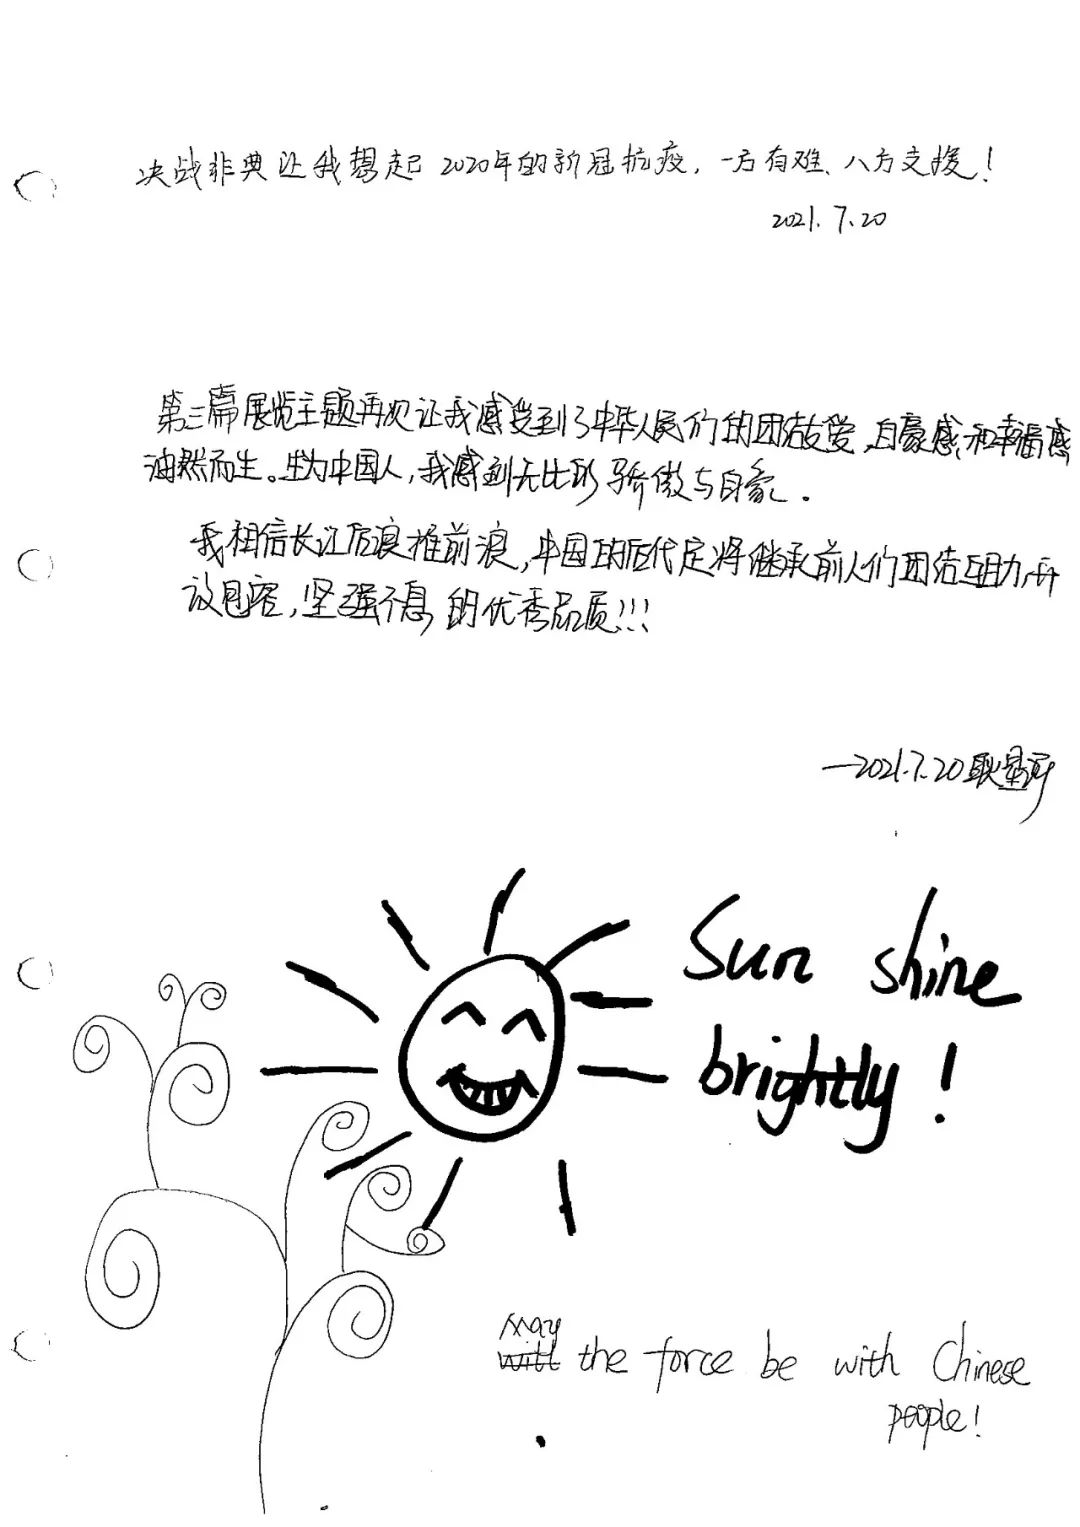 决战非典让我想起2020年的新冠抗疫，一方有难、八方支援！
2021.7.20
第三篇展览主题再次让我感受到了中华人民们的团结友爱，自豪感和幸福感
油然而生。生为中国人，我感到无比的骄傲与自豪。
我相信长江后浪推前浪，中国的后代定将继承前人们团结互助，开
放包容，坚强不息的优秀品质!!!
—2021.7.20 耿
Sun shine
brightly!
may
will the force be with Chinese
people!